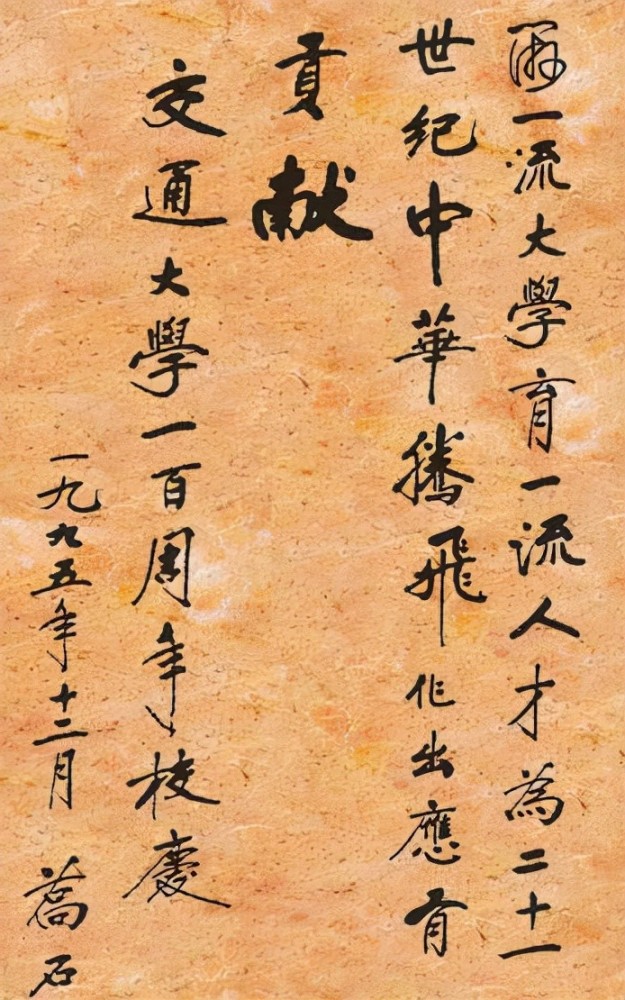 辦一流大學育一流人才為二十一
世紀中華騰飛作出應有
貢献
交通大學一百周年校慶
一九九五年十二月 喬石